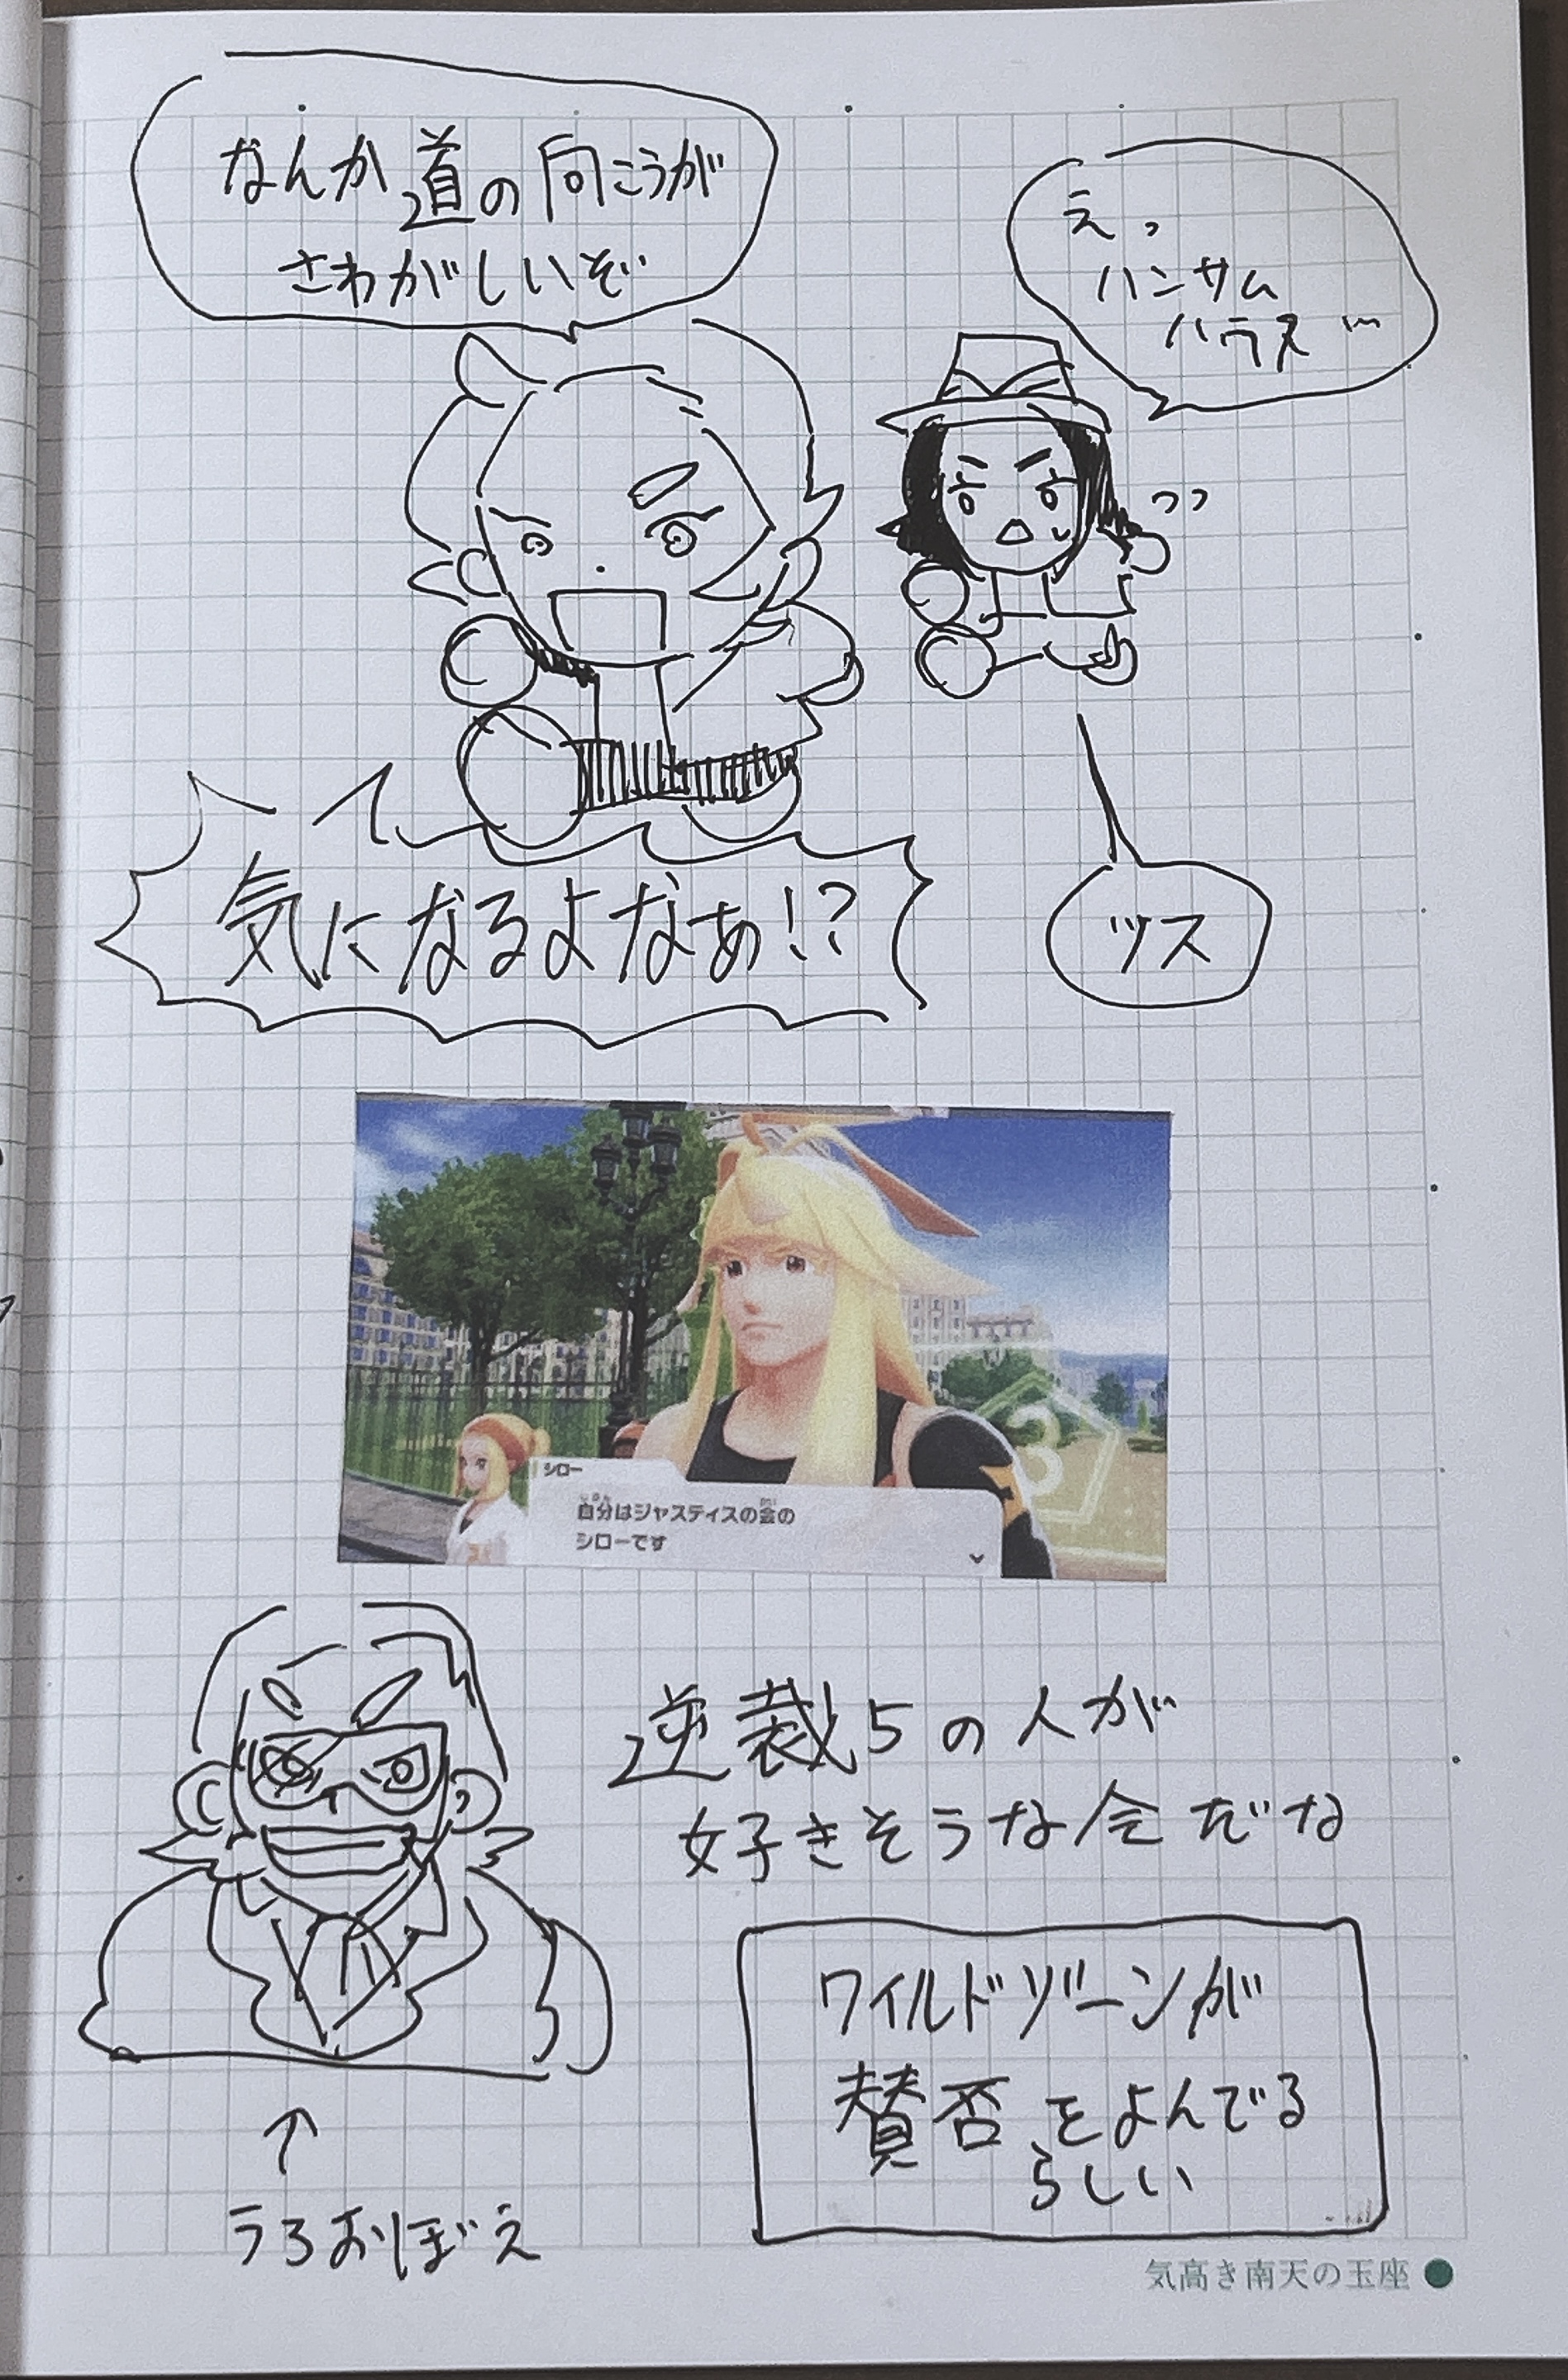 なんか道の向こうが
さわがしいぞ
えっ
ハンサム
ハラス…
気になるよなぁ!?
ッス
シロー
自分はジャスティスの会の
シローです
逆裁5の人が
好きそうな会だな
ワイルドゾーンが
賛否をよんでる
らしい
↑
うろおぼえ
気高き南天の玉座